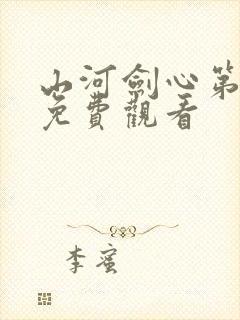 山河劍心第
免費觀看
李蜜